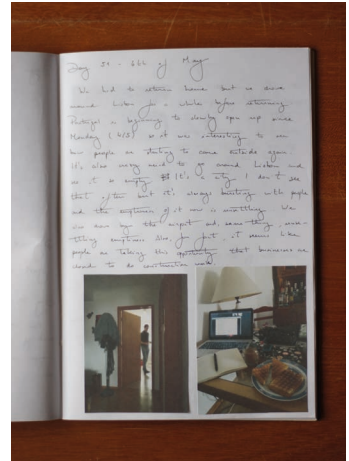 Day 52 - 6th of May
We had to return home but we drove
around Lisbon for a while before returning
Portugal is beginning to slowly open up since
Monday (4/5) so it was interesting to see
how people are starting to come outside again.
It's also very weird to go around Lisbon and
see it so empty. It's a city I don't see
that often but it's always bustling with people
and the emptiness of it now is unsettling. We
also drove by the airport and, same thing,
emptiness. Also, it seems like
people are taking this opportunity that businesses are
closed to do construction work.